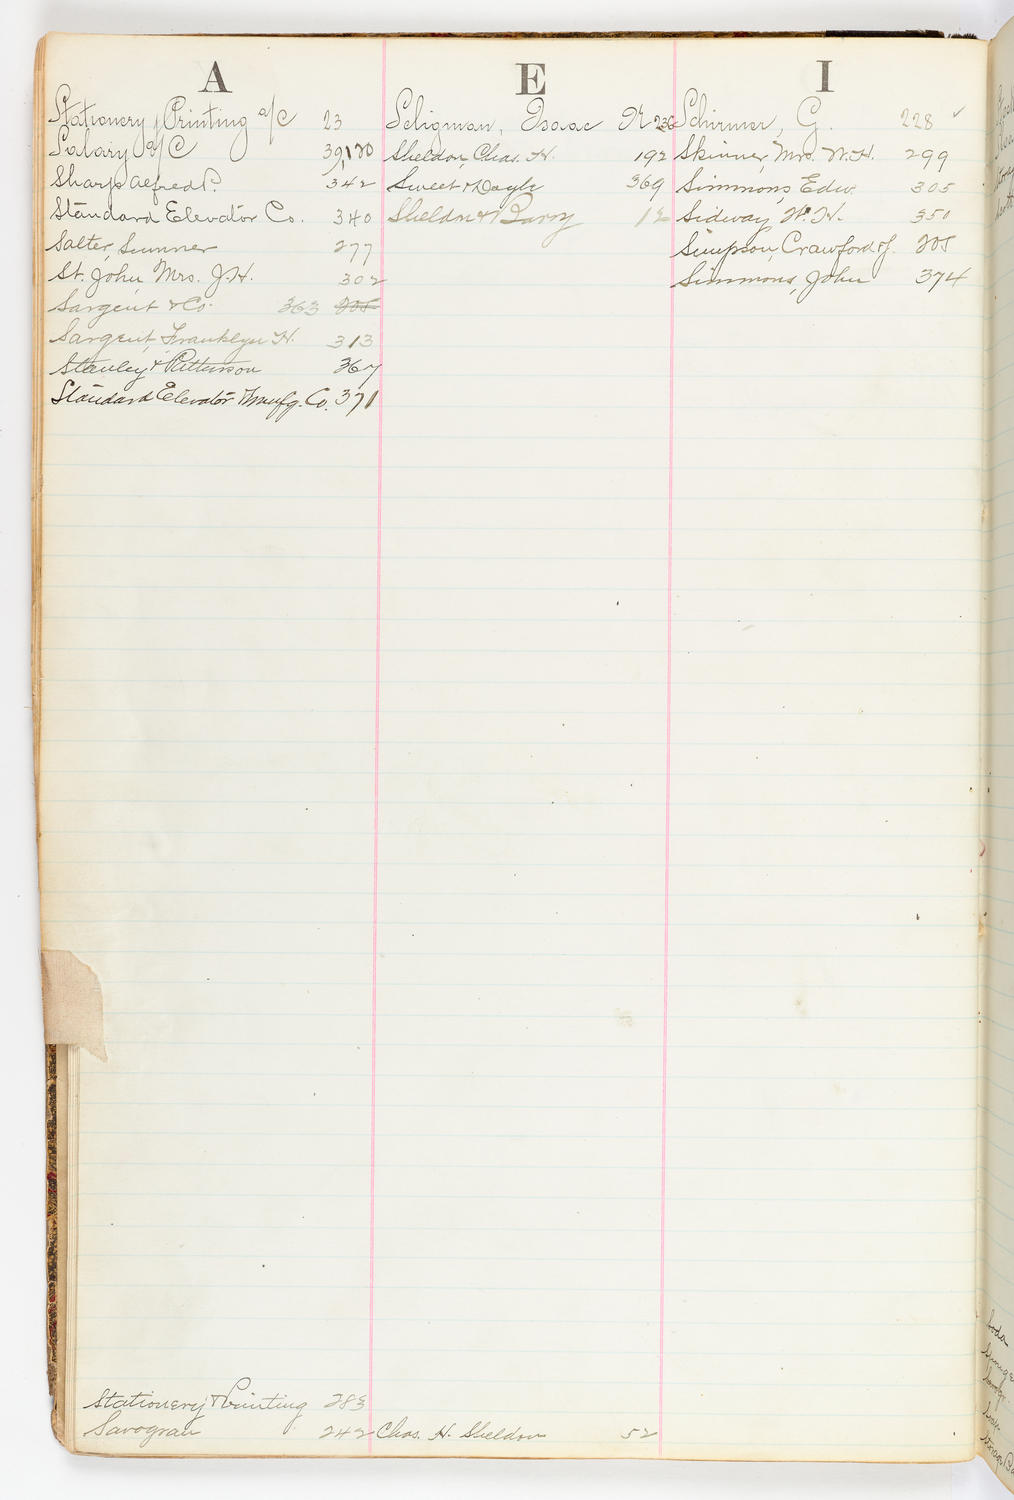 A
Stationery & Printing a/c 23
Salary a/c 39, 120
Sharp Alfred P. 342
Standard Elevator Co. 340
Salter, Sumner 277
St. John Mrs. J. H. 302
Sargent & Co. 363 205
Sargent, Franklyn H. 313
Stanley & Patterson 367
Standard Elevator & Manfg. Co. 371
Stationery & Printing 283
Savogran 242
E
Seligman, Isaac N. 236
Sheldon, Chas. H. 192
Sweet & Doyle 369
Sheldon & Barry 12
Chas. H. Sheldon 52
I
Schirmer, G. 228 ✓
Skinner, Mrs. W. H. 299
Simmons, Edw. 305
Sidway, W. H. 350
Simpson, Crawford & 205
Simmons, John 374
Soda